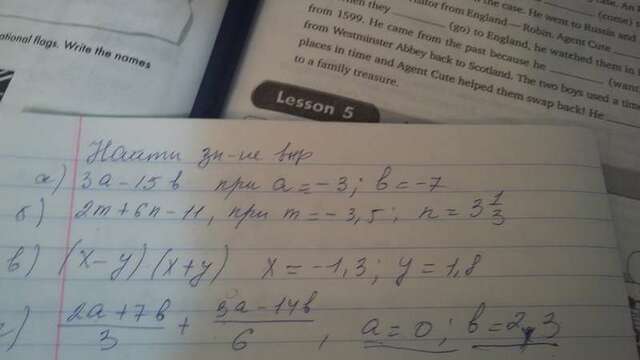 the case. He went to Russia and
visitor from England — Robin. Agent Cute
when they (go) to England, he watched them in
from 1599. He came from the past because he (want
from Westminster Abbey back to Scotland. The two boys used a time
places in time and Agent Cute helped them swap back! He
to a family treasure.
ational flags. Write the names
Lesson 5
Найти зн-ие выр
а) 3a - 15b при a = -3; b = -7
б) 2m + 6n - 11, при m = -3,5; n = 3 1/3
в) (x - y) · (x + y) x = -1,3; y = 1,8
г) (2a + 7b)/3 + (3a - 14b)/6, a = 0; b = 2,3